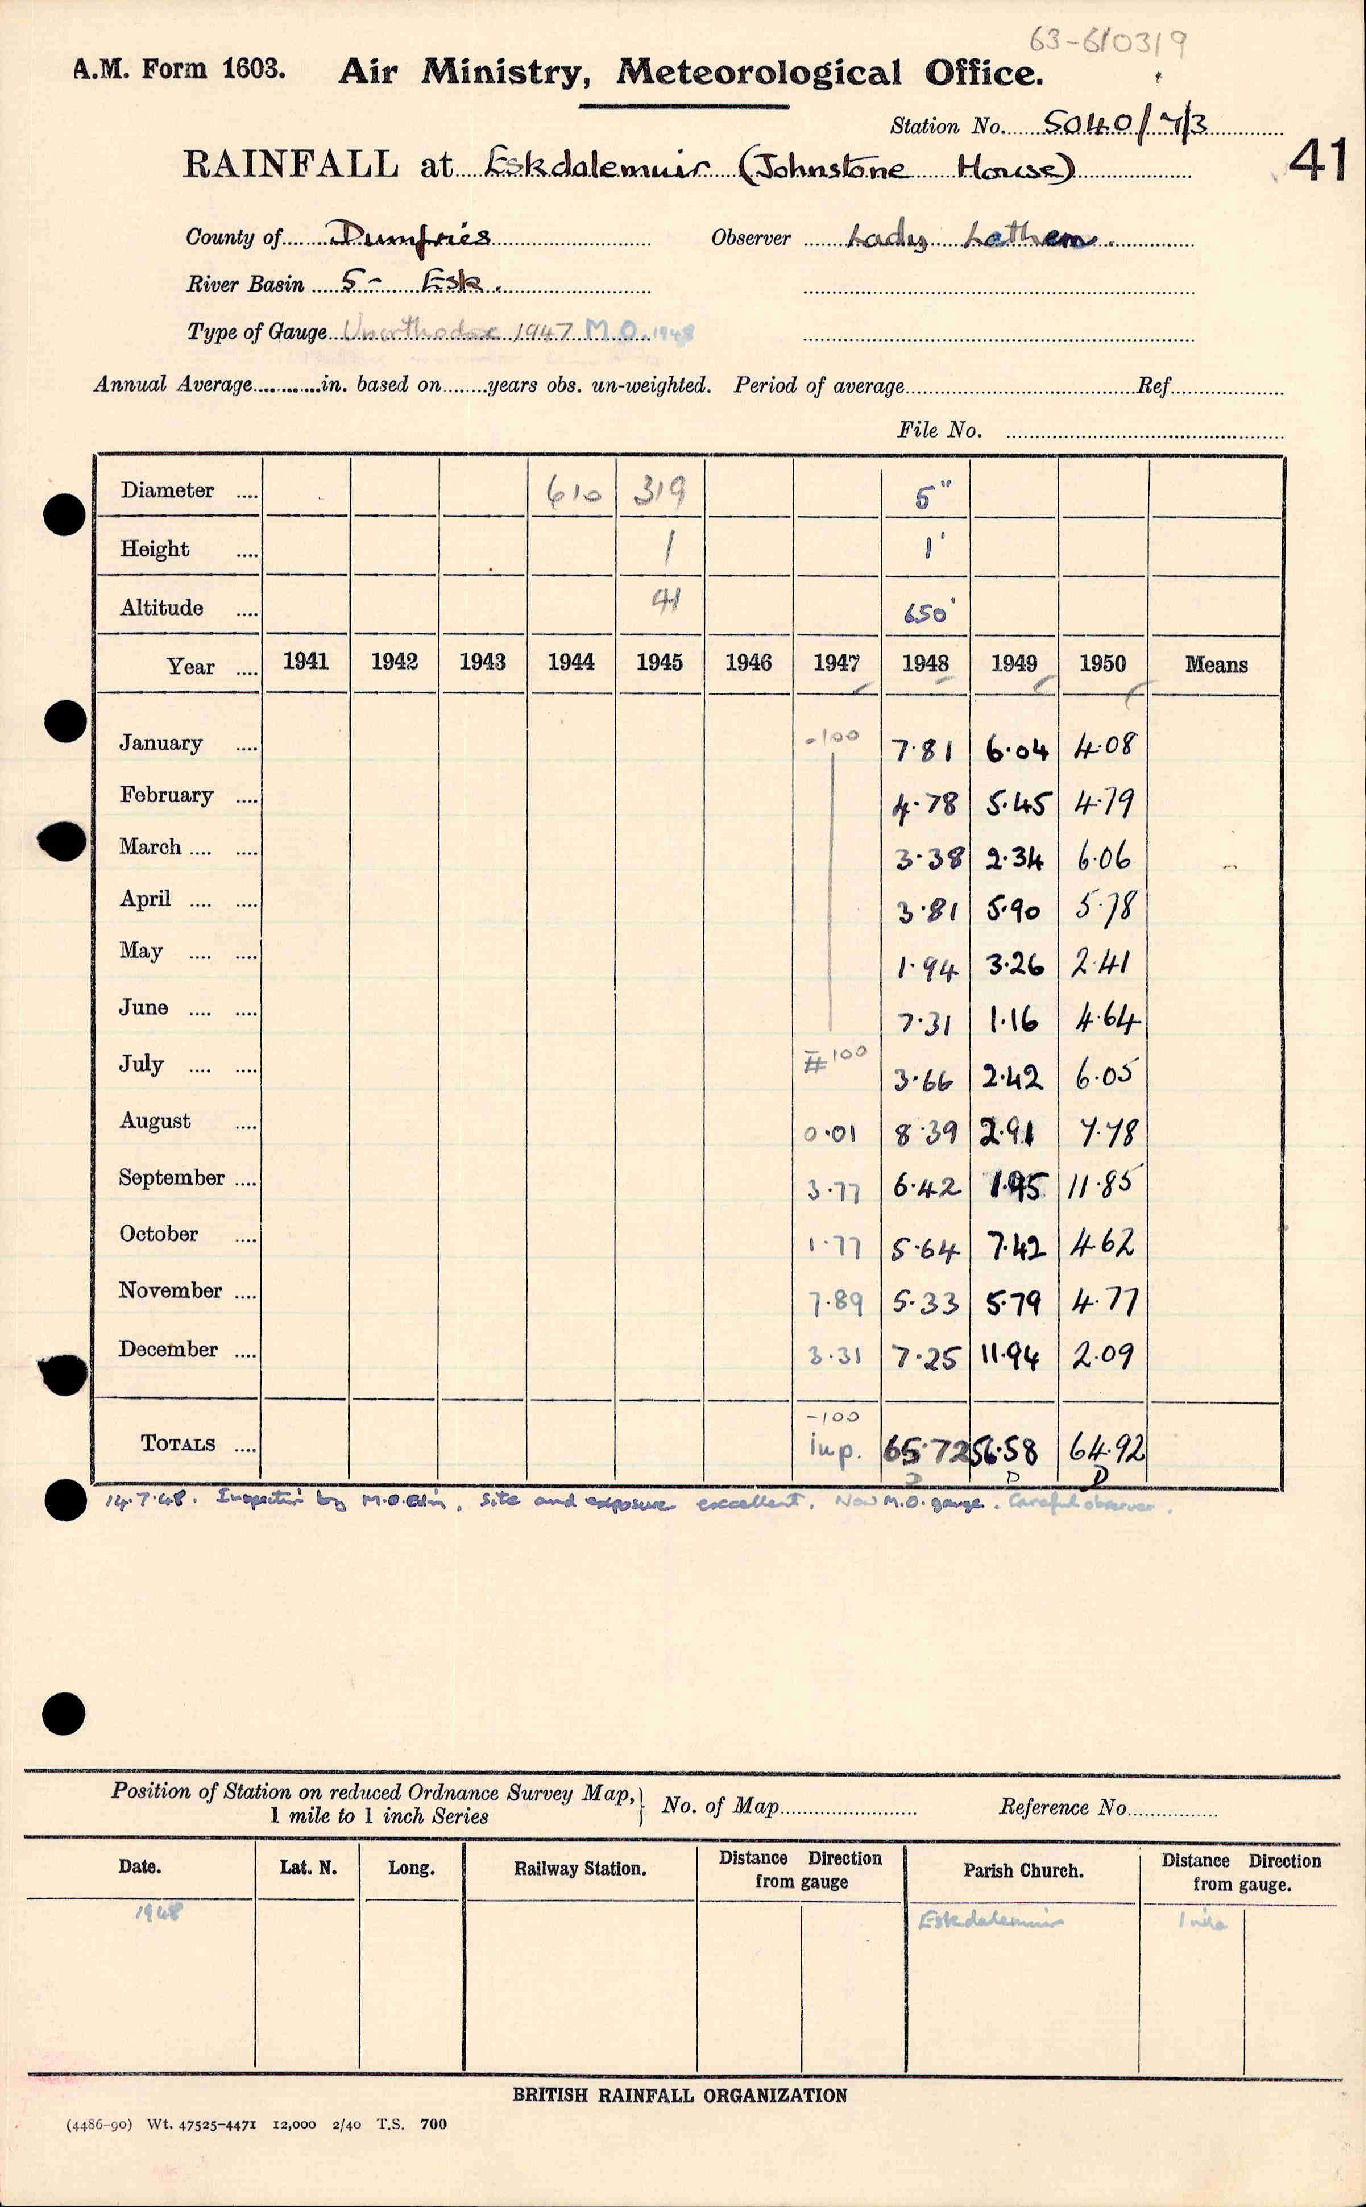 63-610319
A.M. Form 1603. Air Ministry, Meteorological Office.
Station No. 5040/7/3
RAINFALL at Eskdalemuir (Johnstone House) 41
County of Dumfries Observer Lady Lathem.
River Basin 5- Esk.
Type of Gauge Unorthodox 1947 M.O. 1948
Annual Average............in. based on.......years obs. un-weighted. Period of average.......... Ref..........
File No. ..........
Diameter .... 610 319 5"
Height .... 1 1'
Altitude .... 41 650'
Year .... 1941 1942 1943 1944 1945 1946 1947 1948 1949 1950 Means
January .... -100 7.81 6.04 4.08
February .... 4.78 5.45 4.79
March .... .... 3.38 2.34 6.06
April .... .... 3.81 5.90 5.78
May .... .... 1.94 3.26 2.41
June .... .... 7.31 1.16 4.64
July .... .... -100 3.66 2.42 6.05
August .... 0.01 8.39 2.91 7.78
September .... 3.77 6.42 1.95 11.85
October .... 1.77 5.64 7.42 4.62
November .... 7.89 5.33 5.79 4.77
December .... 3.31 7.25 11.94 2.09
-100
TOTALS .... Inp. 65.72 56.58 64.92
D D D
14.7.48. Inspection by M.O. Edin. Site and exposure excellent. Now M.O. gauge. Careful observer.
Position of Station on reduced Ordnance Survey Map, } No. of Map.......... Reference No..........
1 mile to 1 inch Series
Date. Lat. N. Long. Railway Station. Distance Direction from gauge Parish Church. Distance Direction from gauge.
1948 Eskdalemuir
BRITISH RAINFALL ORGANIZATION
(4486-90) Wt. 47525-4471 12,000 2/40 T.S. 700